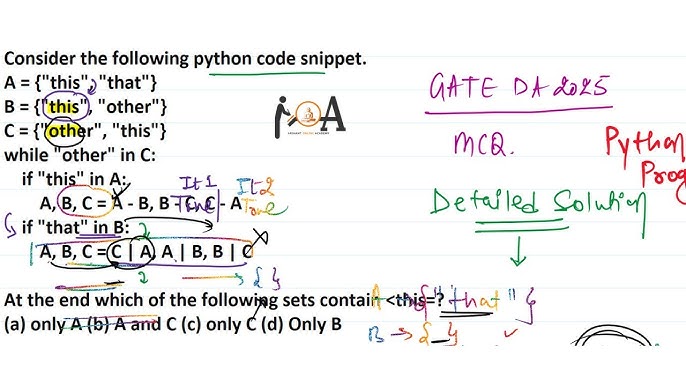 Consider the following python code snippet.
A = {"this", "that"}
B = {"this", "other"}
C = {"other", "this"}
while "other" in C:
if "this" in A:
A, B, C = A - B, B - C, C - A
if "that" in B:
A, B, C = C | A, A | B, B | C
At the end which of the following sets contain <this=?
(a) only A (b) A and C (c) only C (d) Only B
A
GATE DA 2025
MCQ.
Python
Prog
Detailed Solution
It1
It2
True
True
{ }
A → {"that"}
B → { }